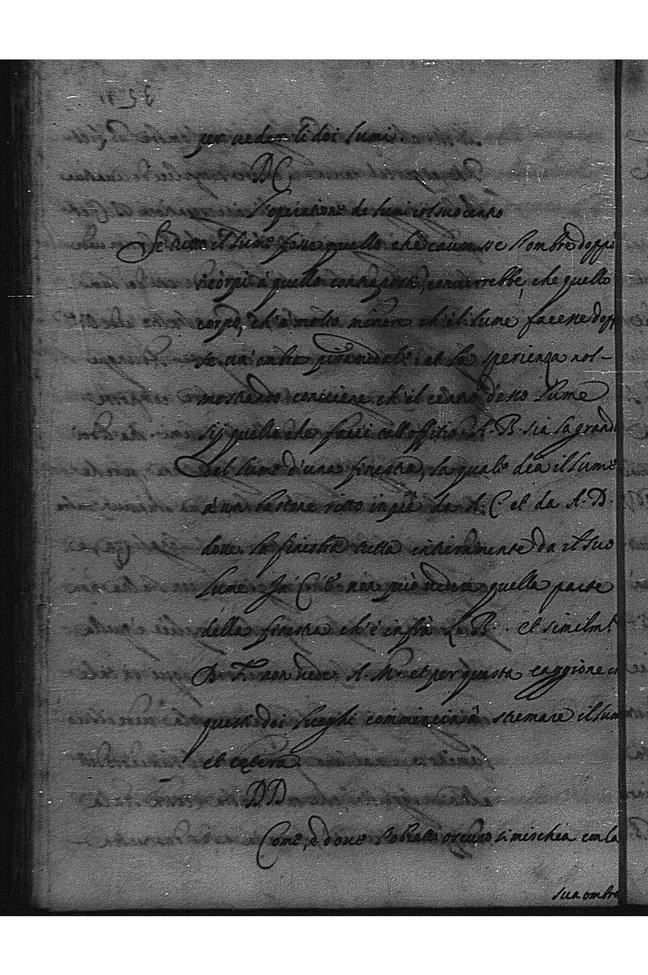 per veder li doi lumi.
DC
L'operatione de lumi col suo centro
Se tutto il lume fosse quello che causasse l'ombre doppo
i corpi à quello contraposti, converrebbe, che quello
corpo, ch'è molto minore ch'il lume facesse dopo
se un'ombra piramidale, et la sperienza nol-
mostrando conviene ch'il centro d'esso lume
sij quello che facci tall'offitio. A.B. sia la grand
del lume d'una finestra, la quale dia il lume
à un bastone ritto in piè da A.C. et da A.D.
dove la finestra tutta interamente da il suo
lume. In C.E. non può vedere quella parte
della finestra ch'è infrà L.B. et similmt
D.F. non vede A.M. et per questa caggione in
questi doi luoghi comminciarà stremare il lum
et cetera.
DD
Come, è dove l'obietto oscuro si mischia con la
sua ombra